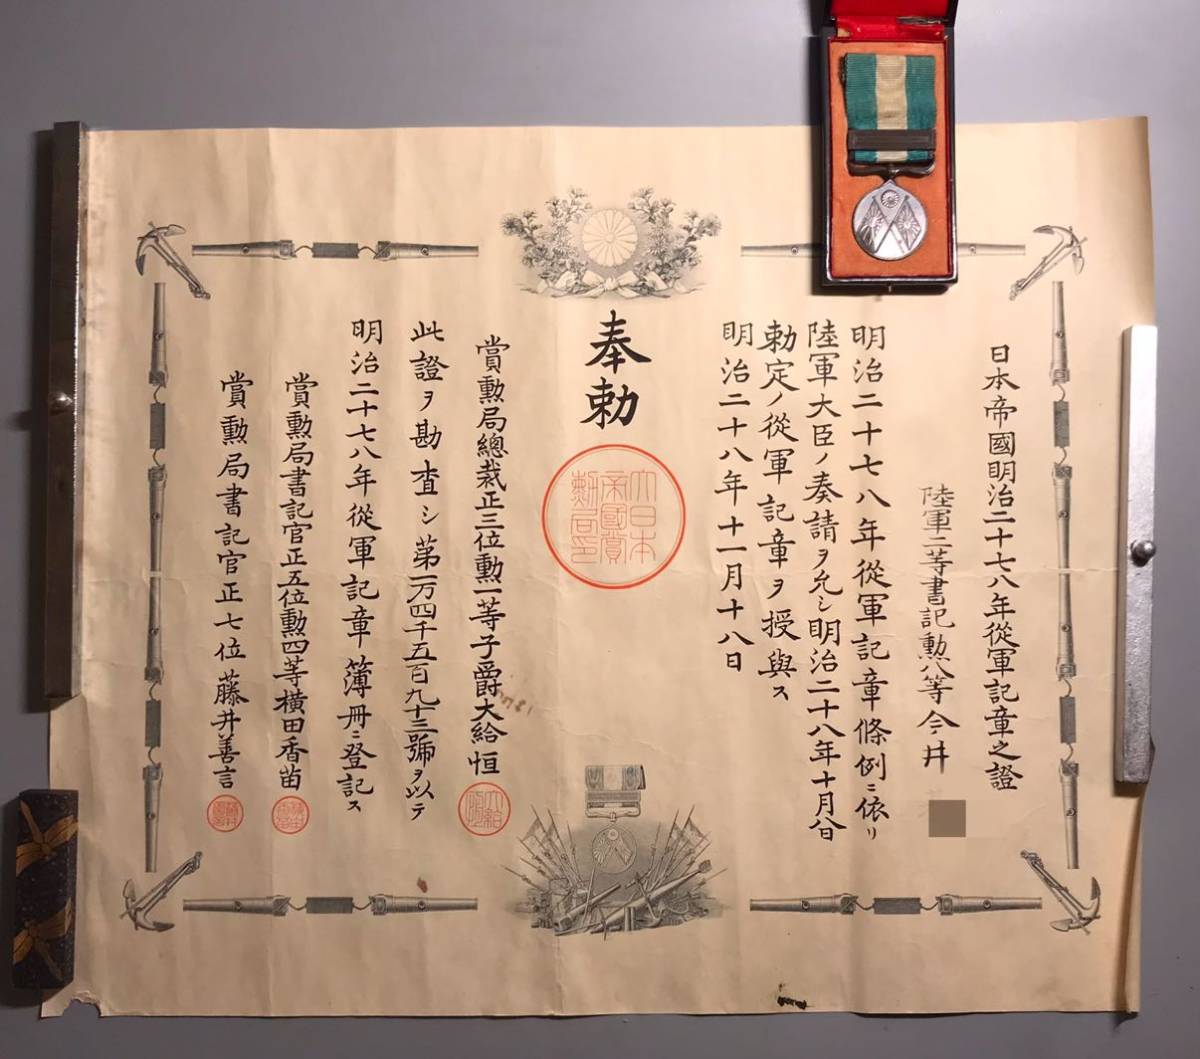 日本帝國明治二十七八年從軍記章之證
陸軍二等書記勲八等今井
明治二十七八年從軍記章條例ニ依リ
陸軍大臣ノ奏請ヲ允シ明治二十八年十月八日
勅定ノ從軍記章ヲ授與ス
明治二十八年十一月十八日
奉勅
大日本帝國賞勲局印
賞勲局總裁正三位勲一等子爵大給恒
此證ヲ勘査シ第一万四千五百九十三號ヲ以テ
明治二十七八年從軍記章簿冊ニ登記ス
賞勲局書記官正五位勲四等横田香苗
賞勲局書記官正七位藤井善言